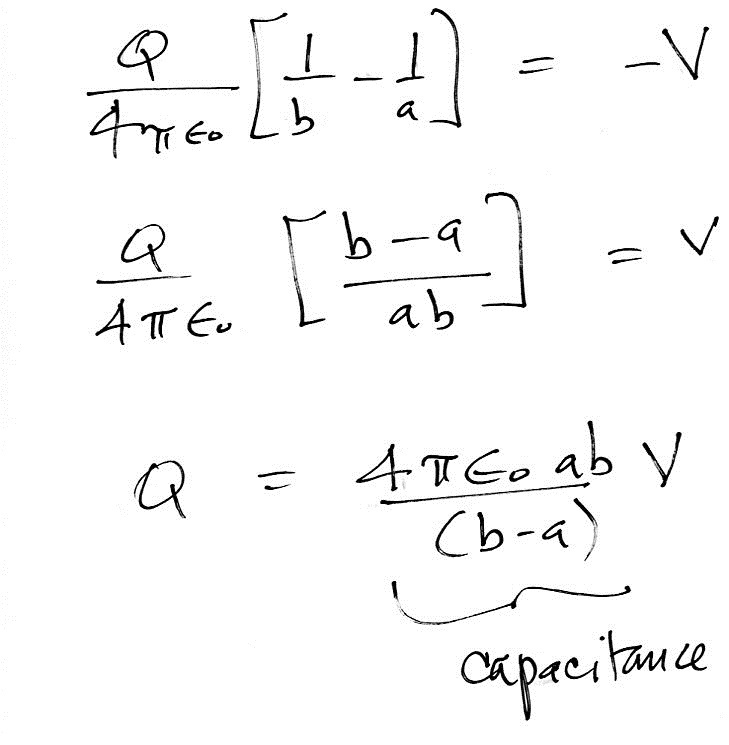 Q/(4πε₀) [1/b − 1/a] = −V
Q/(4πε₀) [(b−a)/(ab)] = V
Q = 4πε₀ ab V/(b−a)
capacitance